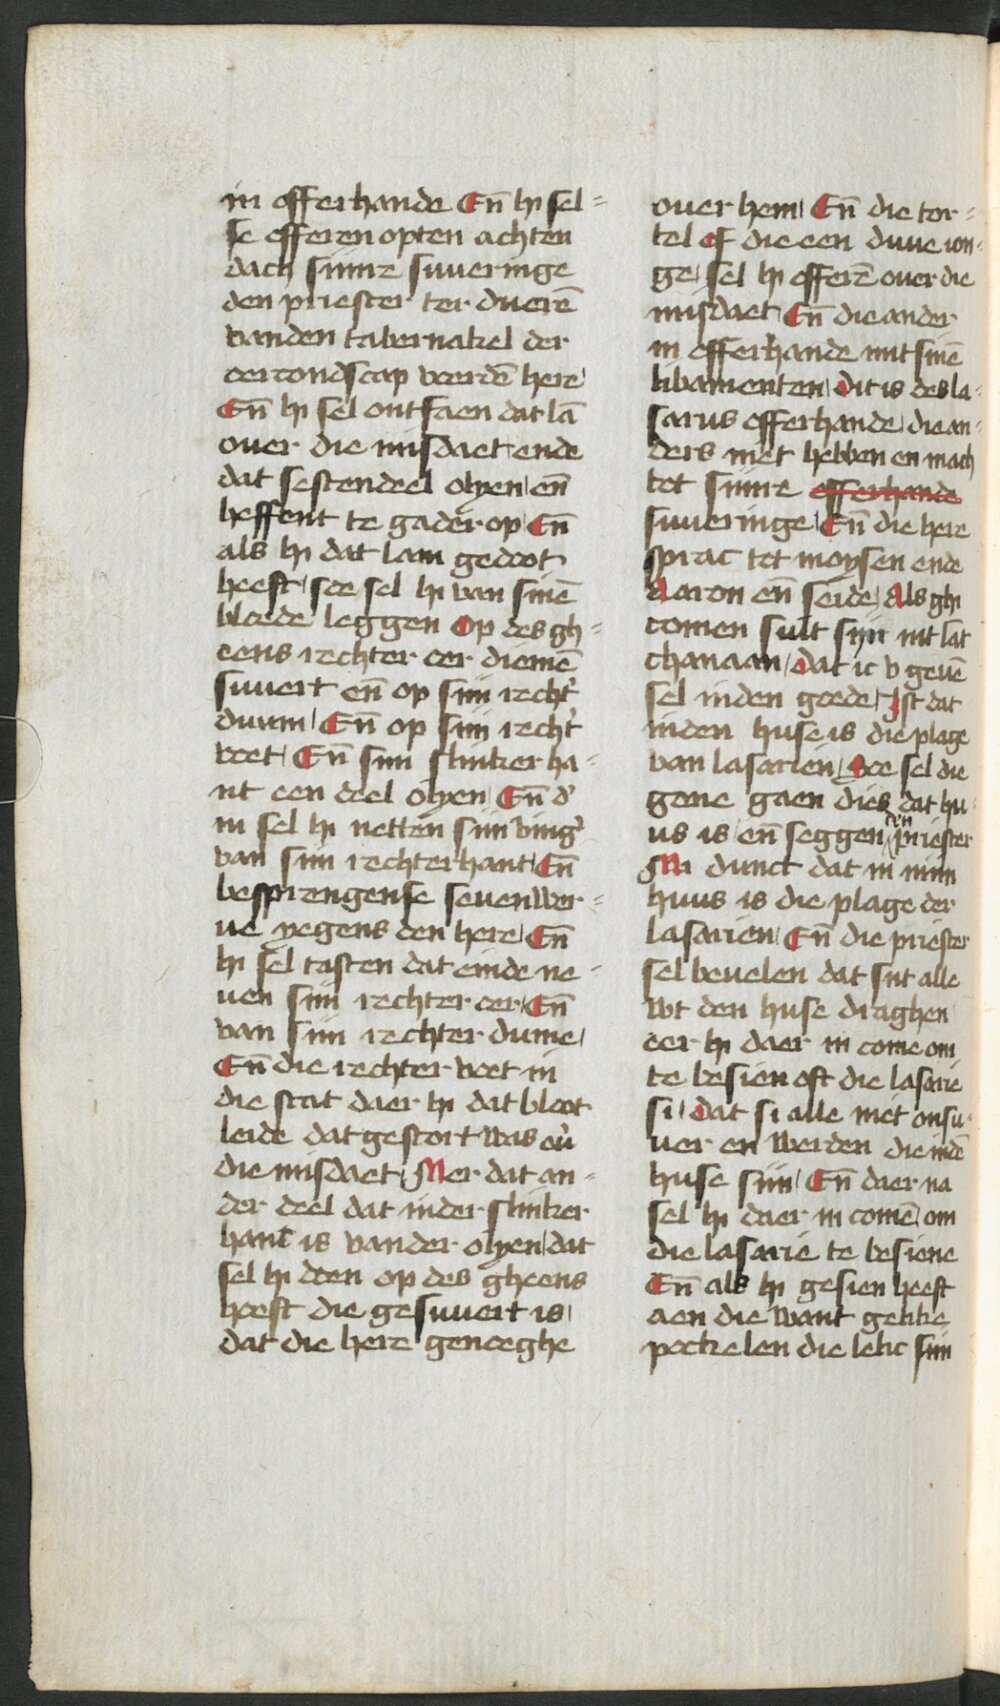 in offerhande En̄ hi sel=
se offeren opten achten
dach sijnre suueringe
den priester ter duerē
vanden tabernakel der
oercondscap voerdē here
En̄ hi sel ontfaen dat lā
ouer die misdaet ende
dat sestendeel olyen en̄
heffent te gader op En̄
als hi dat lam gedoot
heeft soe sel hi van sinē
bloede leggen Op des gh=
eens rechter oer diemē
suuert en̄ op sijn recht'
duum En̄ op sijn recht'
voet En̄ sijn slinker ha=
nt een deel olyen En̄ d'
in sel hi netten sijn ving'
van sijn rechterhant En̄
besprengense seuenwer=
ue yegens den here En̄
hi sel tasten dat einde ne=
uen sijn rechter oer En̄
van sijn rechter dume
En̄ die rechter voet in
die stat daer hi dat bloot
leide dat gestort was ou'
die misdaet Mer dat an=
der deel dat inder slinker
hant is vander olyen dat
sel hi doen op des gheens
hooft die gesuuert is
dat die here genoeghe
ouer hem En̄ die tor=
tel of die een duue ion=
ge sel hi offerē ouer die
misdaet En̄ die ander
in offerhande mit sinē
libamenten Dit is des la=
sarus offerhande die an=
ders niet hebben en mach
tot sijnre offerhande
suueringe En̄ die here
sprac tot moysen ende
Aaron en̄ seide Als ghi
comen sult sijn int lat
chanaan Dat ic v geuē
sel inden goede Ist dat
inden huse is die plage
van lasarien Soe sel die
gene gaen dies dat hu=
us is en̄ seggen ten priester
Mi dunct dat in mijn
huus is die plage der
lasarien En̄ die priester
sel beuelen dat sijt alle
wt den huse draghen
eer hi daer in come om
te besien oft die lasarie
si Dat si alle niet onsu=
uer en werden die indē
huse sijn En̄ daer na
sel hi daer in comē om
die lasarie te besiene
En̄ als hi gesien heeft
aen die want gelike
pockelen die lelic sijn